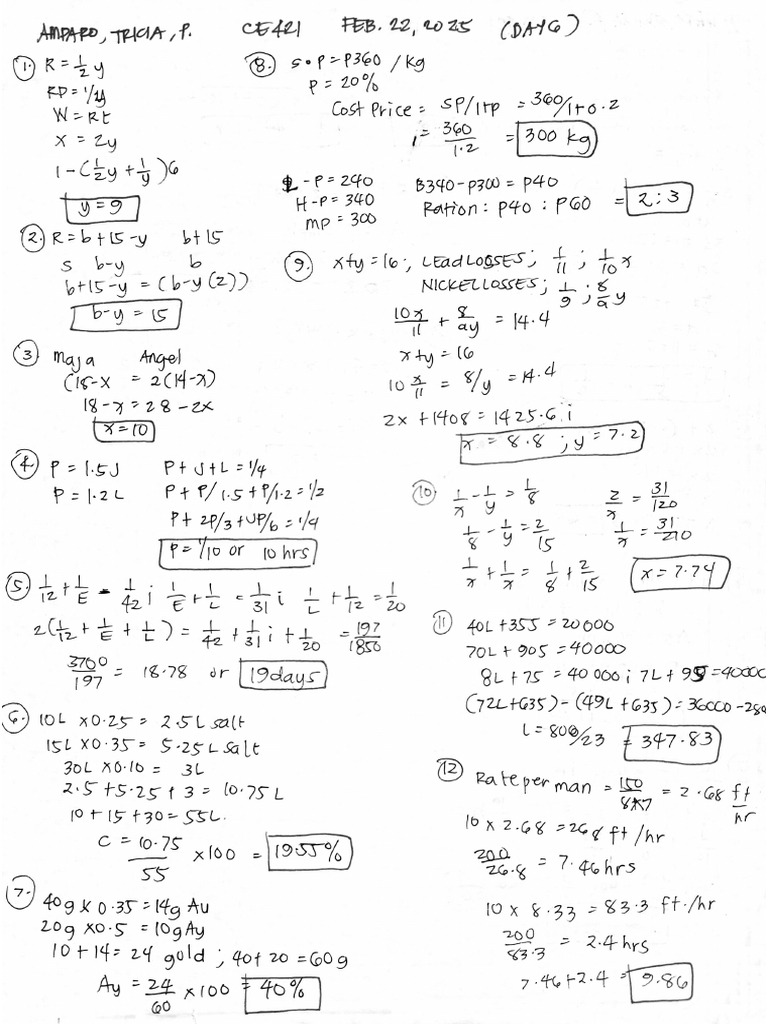 AMPARO, TRICIA, P. CE421 FEB. 22, 2025 (DAY6)
1. R = 1/2 y
RD = 1/2y
W = Rt
x = 2y
1 - (1/2 y + 1/y)6
y = 9
2. R = b + 15 - y b + 15
S b - y b
b + 15 - y = (b - y(2))
b - y = 15
3 Maja Angel
(18 - x = 2(14 - x)
18 - x = 28 - 2x
x = 10
4 P = 1.5J P + J + L = 1/4
P = 1.2L P + P/1.5 + P/1.2 = 1/2
P + 2P/3 + UP/6 = 1/4
P = 1/10 or 10 hrs
5. 1/12 + 1/E = 1/42 ; 1/E + 1/L = 1/31 ; 1/L + 1/12 = 1/20
2(1/12 + 1/E + 1/L) = 1/42 + 1/31 ; + 1/20 = 197/1850
3700/197 = 18.78 or 19 days
6. 10L x 0.25 = 2.5L salt
15L x 0.35 = 5.25L salt
30L x 0.10 = 3L
2.5 + 5.25 + 3 = 10.75L
10 + 15 + 30 = 55L.
C = 10.75/55 x 100 = 19.55%
7. 40g x 0.35 = 14g Au
20g x 0.5 = 10g Ay
10 + 14 = 24 gold ; 40 + 20 = 60g
Ay = 24/60 x 100 = 40%
8. S.P = P360 / kg
P = 20%
Cost Price = SP/1+p = 360/1+0.2
= 360/1.2 = 300 kg
L - P = 240 B340 - P300 = P40
H - P = 340 Ration : P40 : P60 = 2 : 3
MP = 300
9. x + y = 16 ; LEAD LOOSES ; 1/11 ; 1/10 x
NICKEL LOSSES ; 1/9 ; 8/a y
10x/11 + 8/ay = 14.4
x + y = 16
10 x/11 = 8/y = 14.4
2x + 1408 = 1425.6 ;
x = 8.8 ; y = 7.2
10 1/x - 1/y = 1/8 2/x = 31/120
1/8 - 1/y = 2/15 1/x = 31/210
1/x + 1/x = 1/8 + 2/15 x = 7.74
11 40L + 355 = 20000
70L + 905 = 40000
8L + 75 = 40000 ; 7L + 95 = 40000
(72L + 635) - (49L + 635) = 36000 - 280
L = 800/23 = 347.83
12 Rate per man = 150/8x7 = 2.68 ft/hr
10 x 2.68 = 268 ft/hr
200/26.8 = 7.46 hrs
10 x 8.33 = 83.3 ft./hr
200/83.3 = 2.4 hrs
7.46 + 2.4 = 9.86